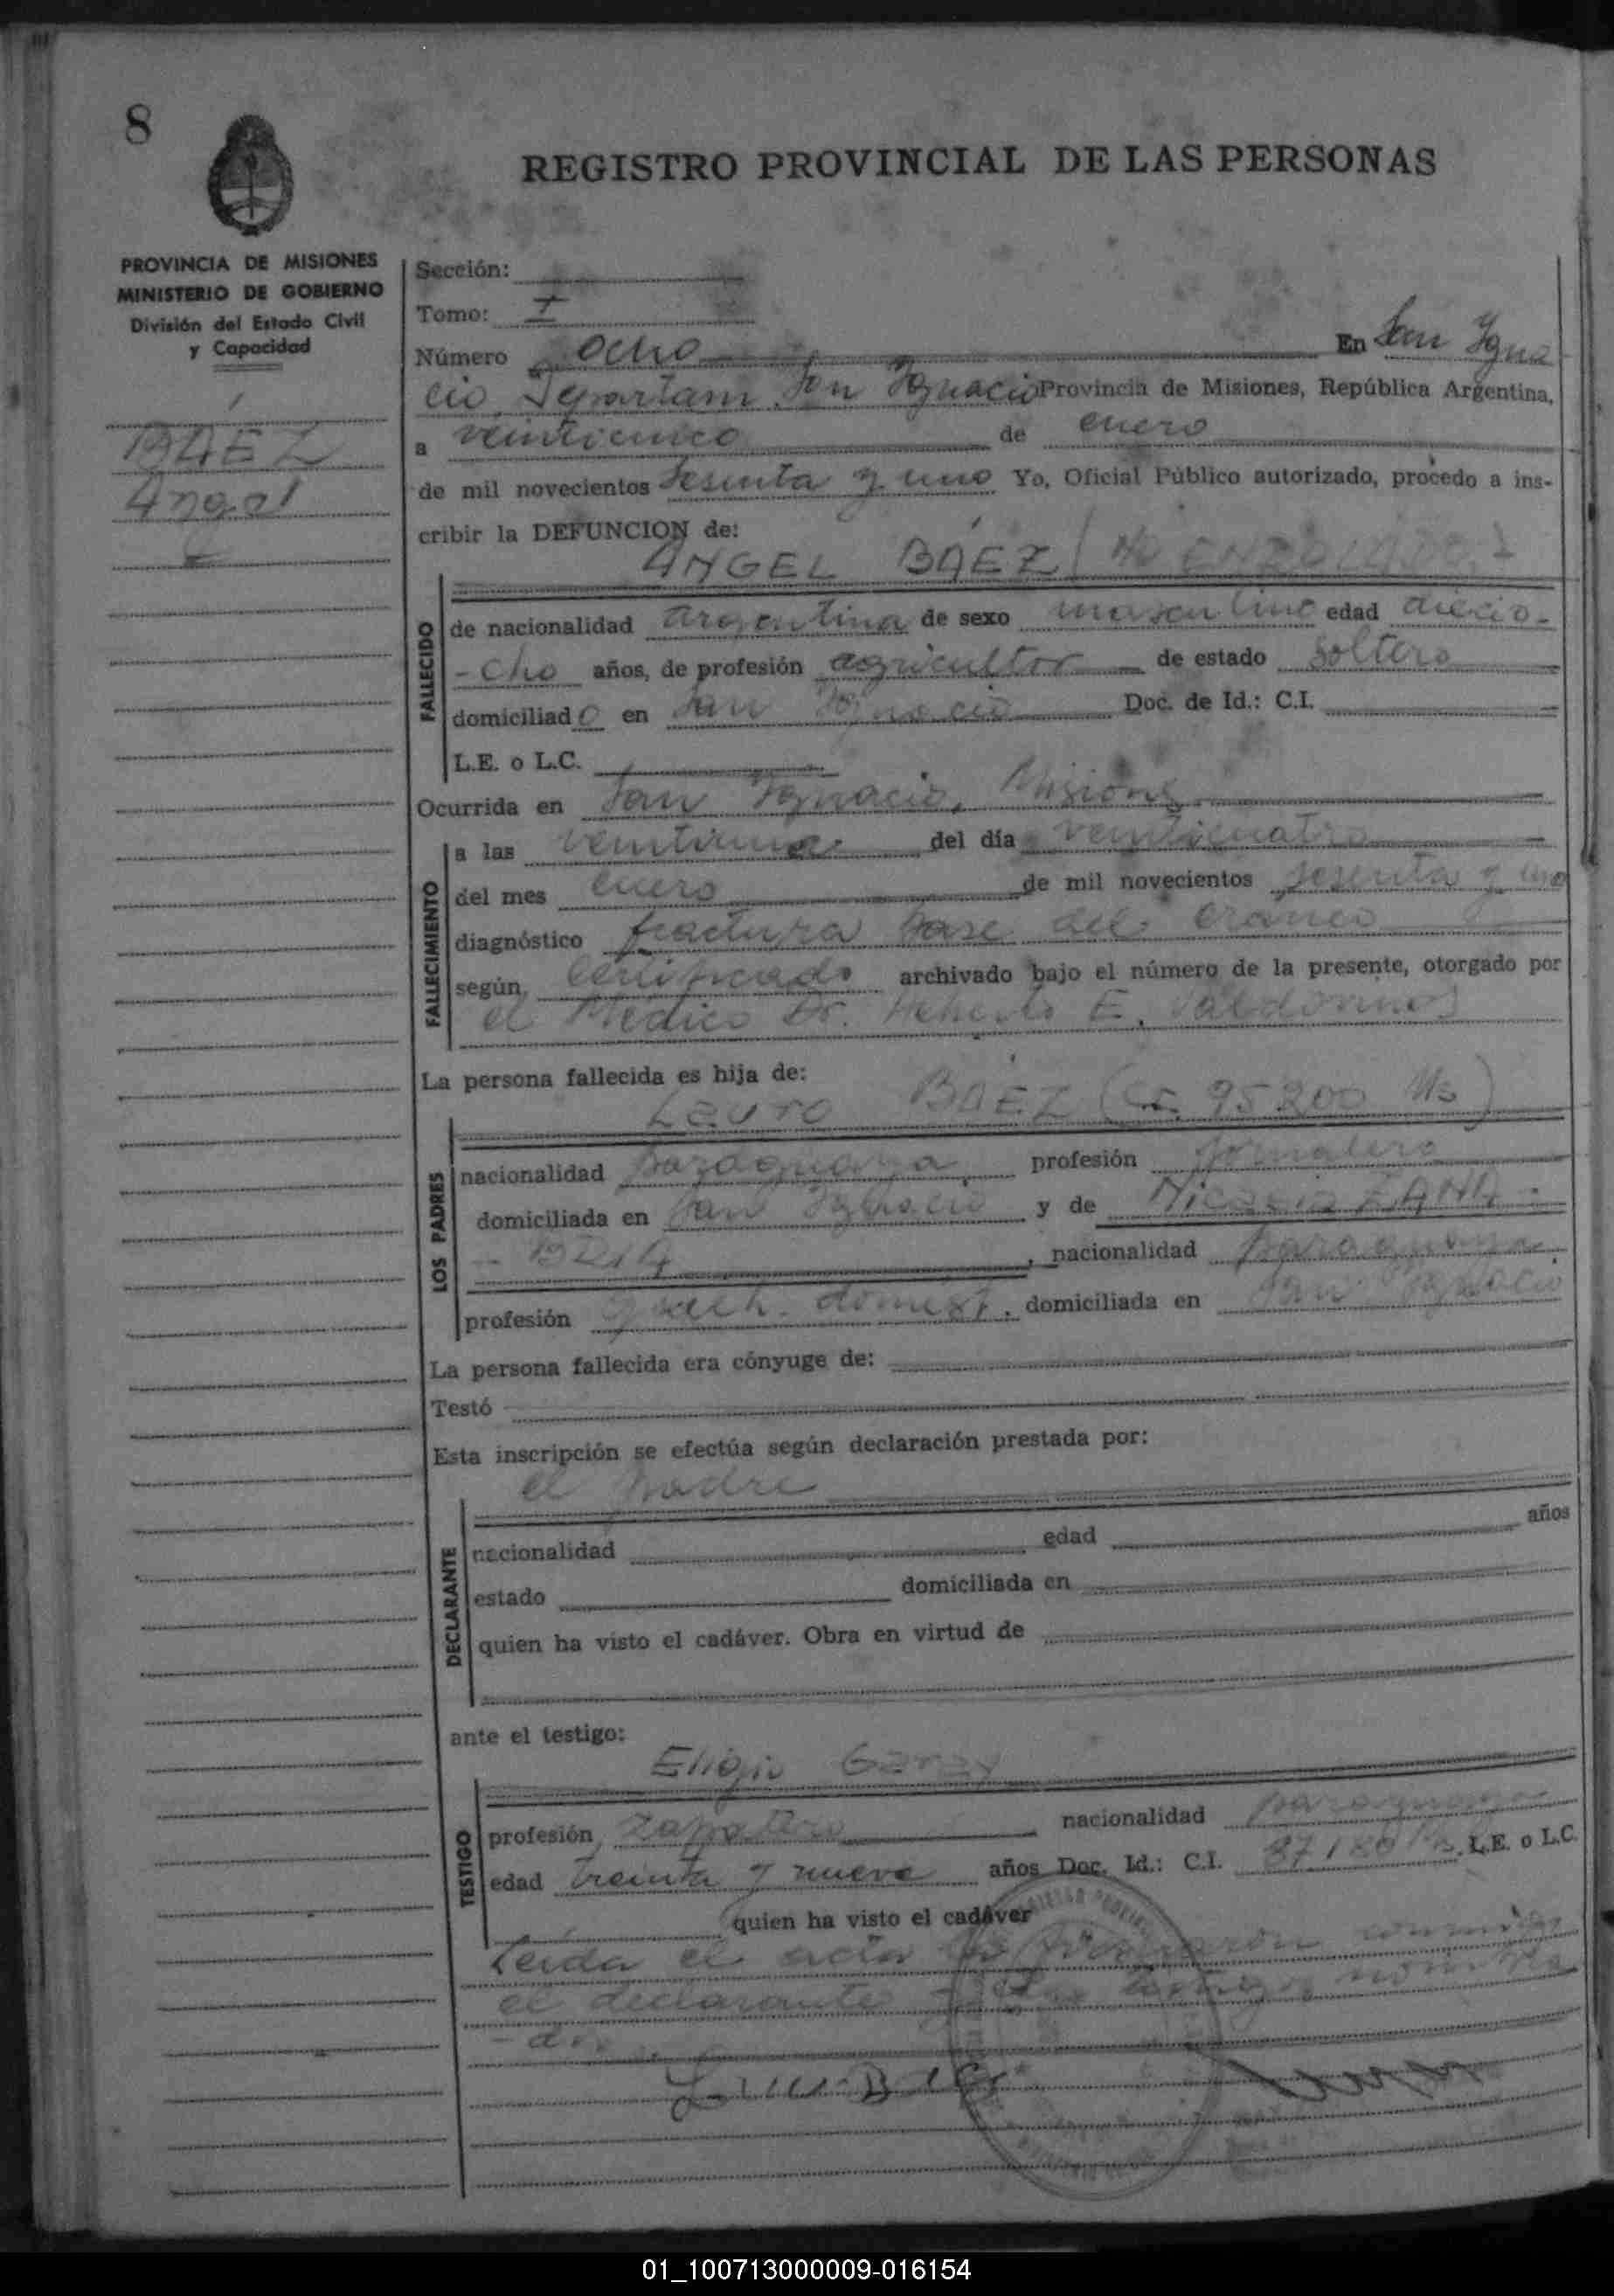 8
REGISTRO PROVINCIAL DE LAS PERSONAS
PROVINCIA DE MISIONES
MINISTERIO DE GOBIERNO
División del Estado Civil
y Capacidad
BAÉZ
Angel
Sección:
Tomo: I
Número ocho En San Igna
cio, Departam. San Ignacio Provincia de Misiones, República Argentina,
a veinticinco de enero
de mil novecientos sesenta y uno Yo, Oficial Público autorizado, procedo a ins-
cribir la DEFUNCION de:
ANGEL BÁEZ (NO ENROLADO)
FALLECIDO
de nacionalidad argentina de sexo masculino edad diecio-
-cho años, de profesión agricultor de estado soltero
domiciliado en San Ignacio Doc. de Id.: C.I.
L.E. o L.C.
Ocurrida en San Ignacio, Misiones
FALLECIMIENTO
a las veintiuna del día veinticuatro
del mes enero de mil novecientos sesenta y uno
diagnóstico fractura base del craneo
según certificado archivado bajo el número de la presente, otorgado por
el Médico Dr. E.
La persona fallecida es hija de:
BÁEZ 95200 Ms)
LOS PADRES
nacionalidad paraguaya profesión jornalero
domiciliada en San Ignacio y de
nacionalidad paraguaya
profesión queh. domést. domiciliada en San Ignacio
La persona fallecida era cónyuge de:
Testó
Esta inscripción se efectúa según declaración prestada por:
el padre
DECLARANTE
nacionalidad edad años
estado domiciliada en
quien ha visto el cadáver. Obra en virtud de
ante el testigo:
Eligio Garay
TESTIGO
profesión zapatero nacionalidad paraguaya
edad treinta y nueve años Doc. Id.: C.I. 87180 L.E. o L.C.
quien ha visto el cadáver
Leida el acta la firmaron conmigo
el declarante y el testigo nombra
-do.
01_100713000009-016154